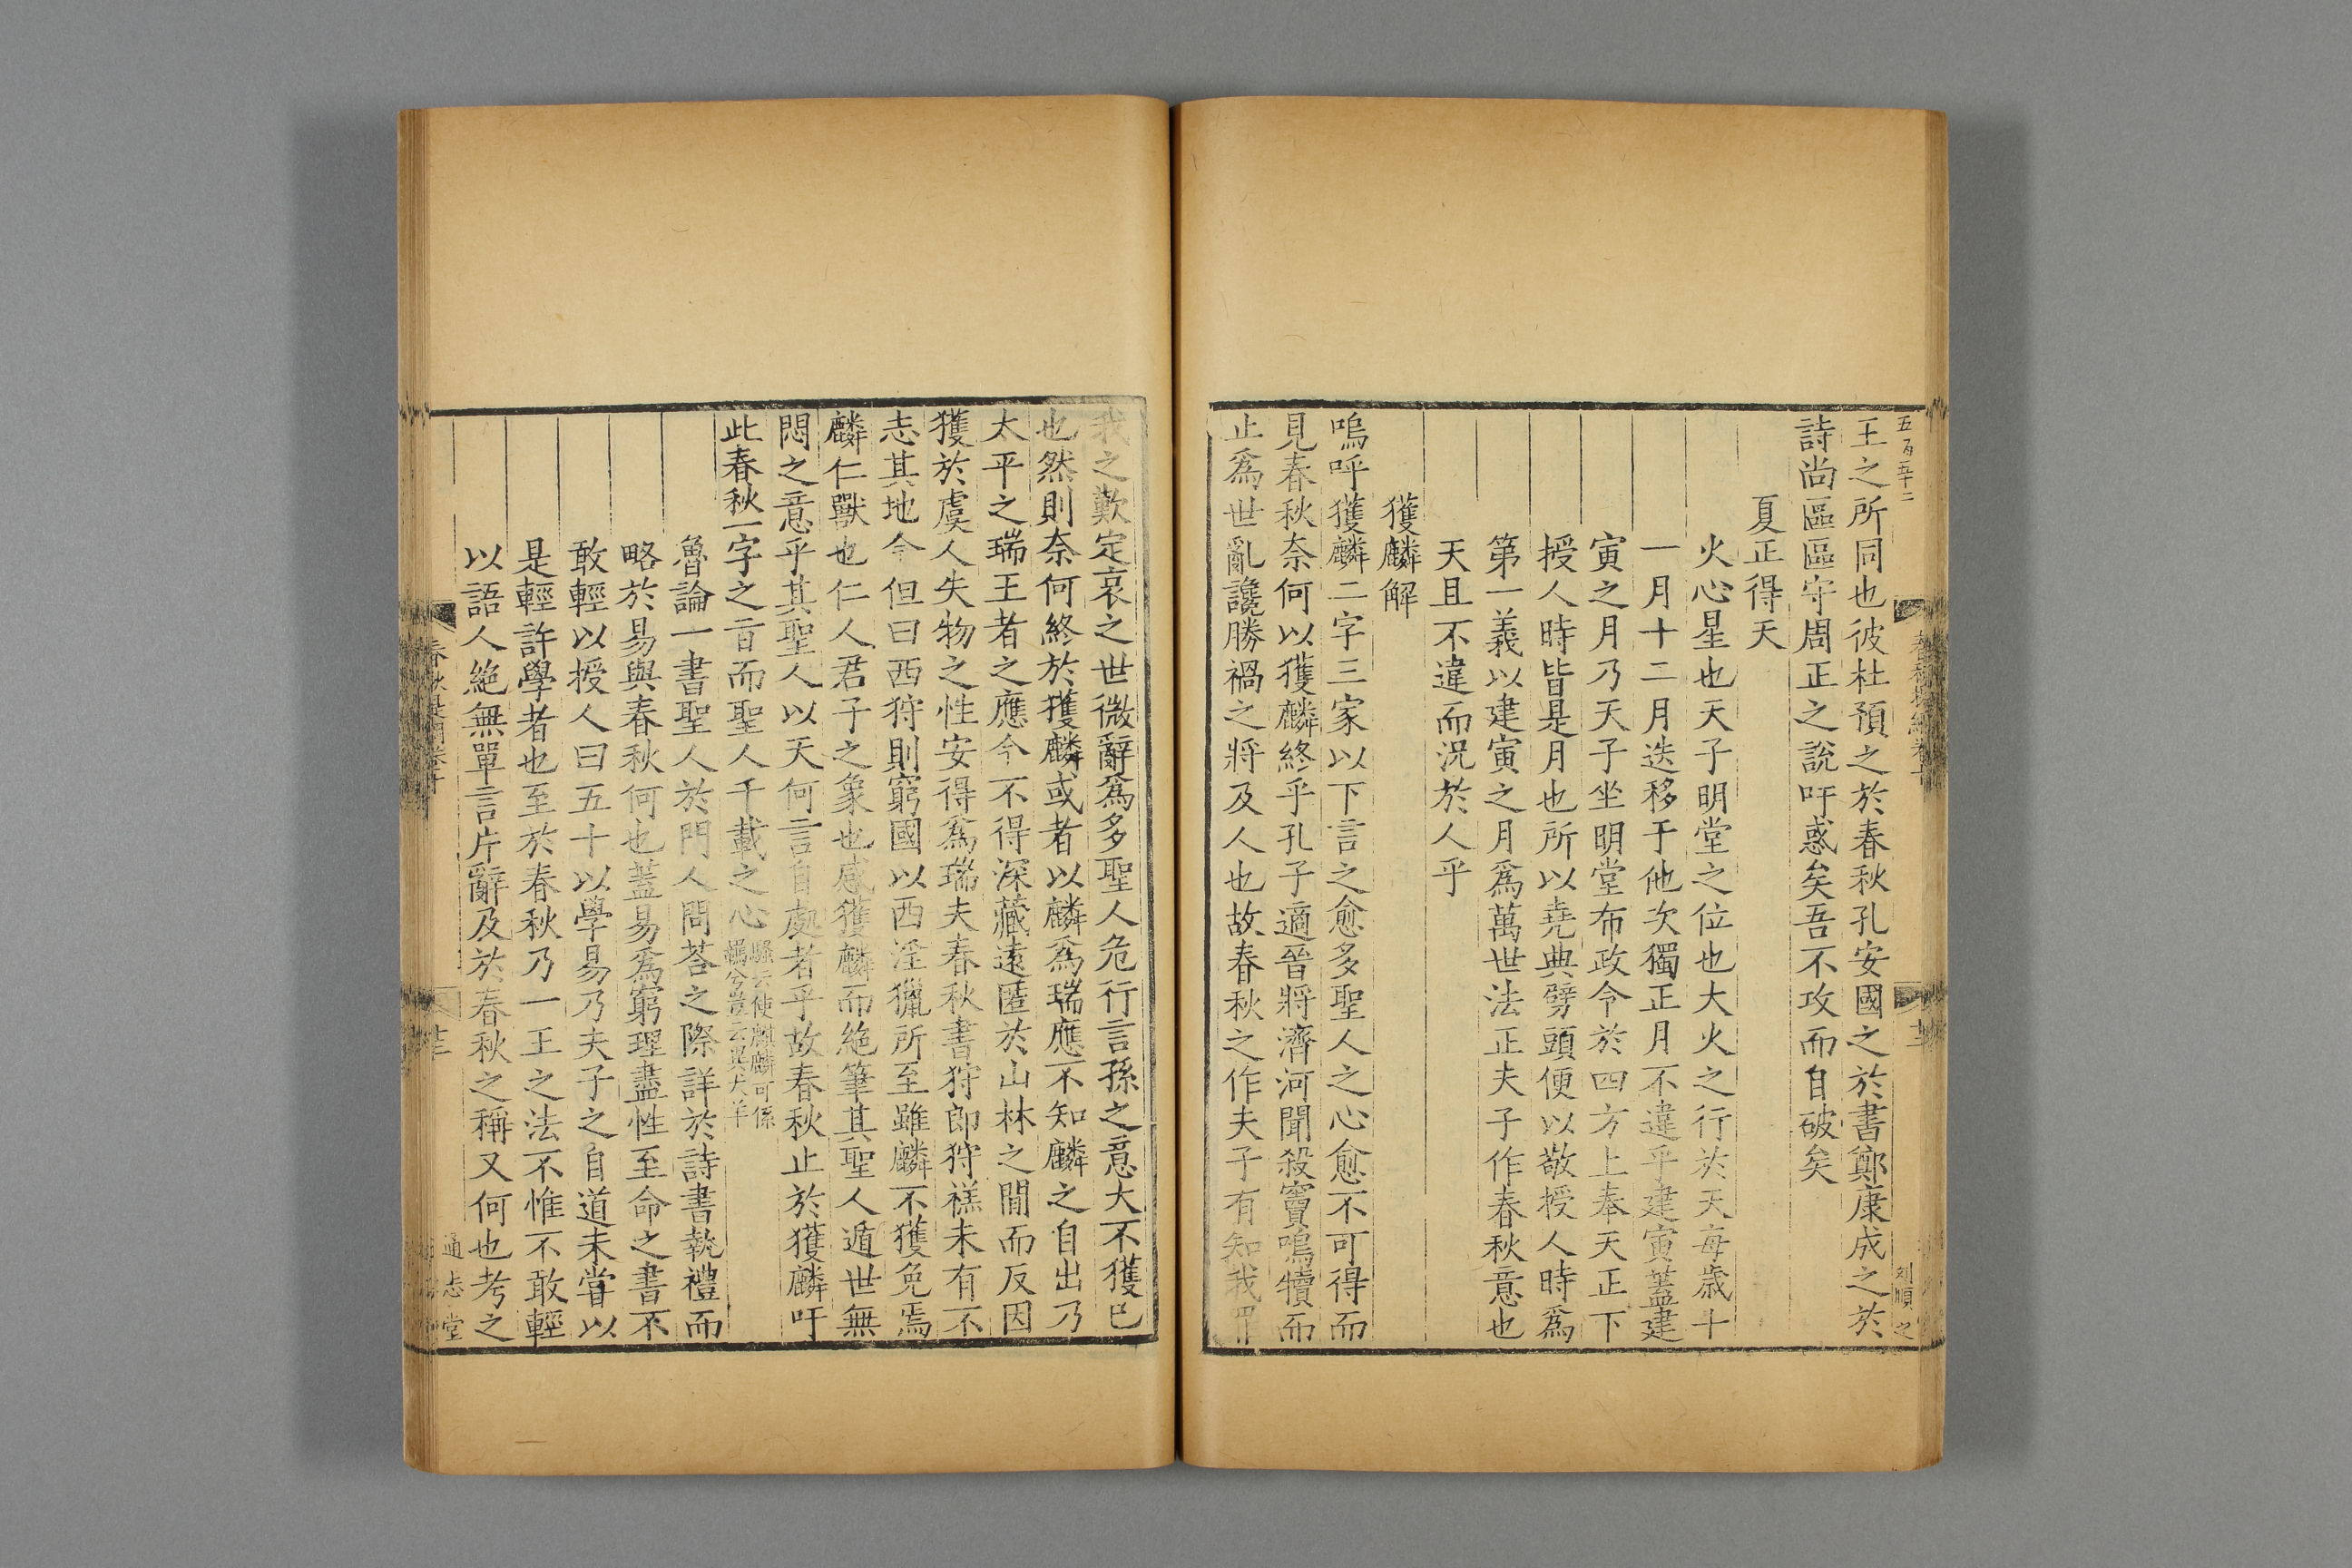 五百五十二
王之所同也彼杜預之於春秋孔安國之於書鄭康成之於
詩尚區區守周正之說吁惑矣吾不攻而自破矣
夏正得天
火心星也天子明堂之位也大火之行於天每歲十
一月十二月迭移于他次獨正月不違乎建寅蓋建
寅之月乃天子坐明堂布政令於四方上奉天正下
授人時皆是月也所以堯典劈頭便以敬授人時爲
第一義以建寅之月爲萬世法正夫子作春秋意也
天且不違而況於人乎
獲麟解
嗚呼獲麟二字三家以下言之愈多聖人之心愈不可得而
見春秋奈何以獲麟終乎孔子適晉將濟河聞殺竇鳴犢而
止爲世亂讒勝禍之將及人也故春秋之作夫子有知我罪
我之歎定哀之世微辭爲多聖人危行言孫之意大不獲已
也然則奈何終於獲麟或者以麟爲瑞應不知麟之自出乃
太平之瑞王者之應今不得深藏遠匿於山林之閒而反因
獲於虞人失物之性安得爲瑞夫春秋書狩郎狩禚未有不
志其地今但曰西狩則窮國以西淫獵所至雖麟不獲免焉
麟仁獸也仁人君子之象也感獲麟而絕筆其聖人遁世無
悶之意乎其聖人以天何言自處者乎故春秋止於獲麟吁
此春秋一字之旨而聖人千載之心
騷云使麒麟可係
羈兮豈云異犬羊
魯論一書聖人於門人問荅之際詳於詩書執禮而
略於易與春秋何也蓋易爲窮理盡性至命之書不
敢輕以授人曰五十以學易乃夫子之自道未嘗以
是輕許學者也至於春秋乃一王之法不惟不敢輕
以語人絕無單言片辭及於春秋之稱又何也考之
通志堂